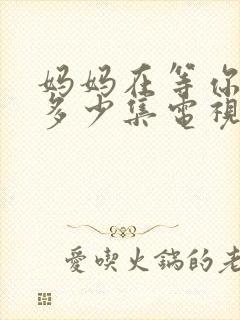 妈妈在等你
多少集電視
愛喫火鍋的老